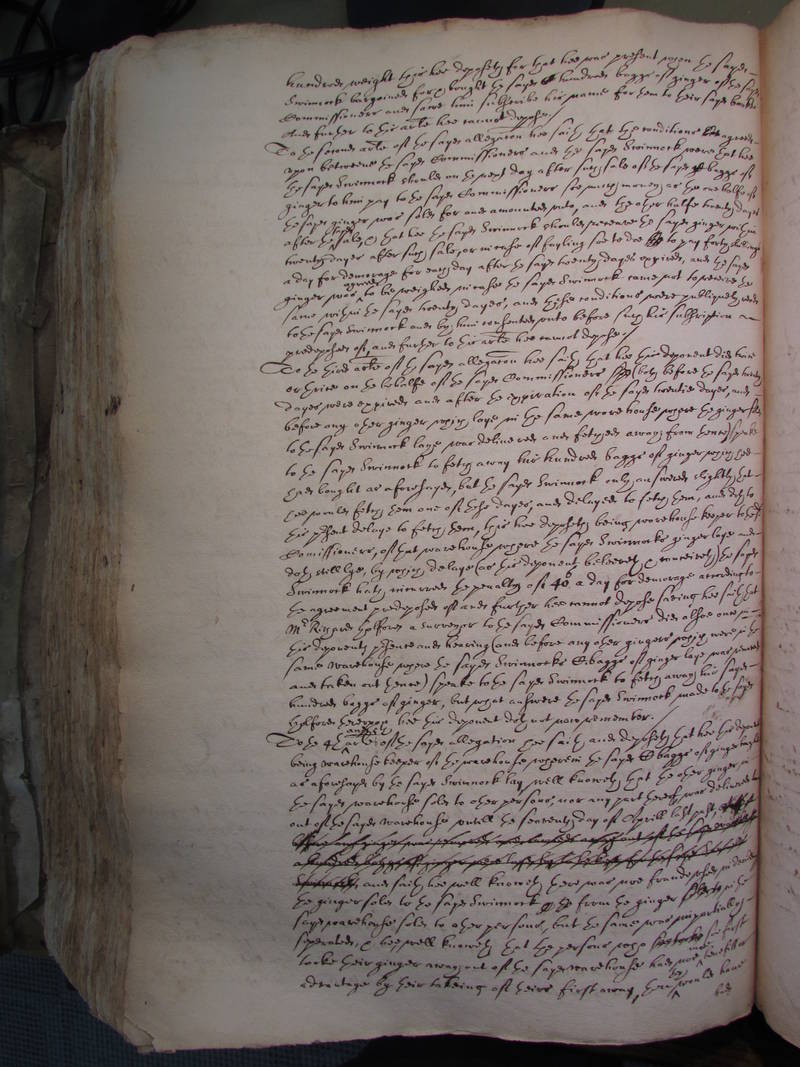 hundred weight this hee deposeth for that hee was present when the sayd
Swinnock bargained for & bought the sayd hundred baggs of ginger of the sayd
Commissioners and sawe him subscribe his name for them to their sayd booke
And further to this arte hee cannot depose./
To the second arte of the sayd allegacon hee saith that the conditions agreed
upon betweene the sayd Commissioners and the sayd Swinnock were that hee
the sayd Swinnock should on the next day after such sale of the sayd baggs of
ginger to him pay to the sayd Commissioners soe much money as the one halfe of
the sayd ginger was sold for and amounted unto, and the other halfe twenty dayes
after the sayd sale, & that hee the sayd Swinnock should receave the sayd ginger within
twenty dayes after such sale, or in case of fayling soe to doe to pay forty shillings
a day for demorage for every day after the sayd twenty dayes expired, and the sayd
ginger was agreed to bee weighed in case the sayd Swinnock came not to receive the
same within the sayd twenty dayes, and these conditions were publiquely read
to the sayd Swinnock and by him consented unto before such his subscription as
predeposed of, and further to this arte hee cannot depose./
To the third arte of the sayd allegacon hee saith that hee this deponent did twice
or thrice on the behalfe of the sayd Commissioners (both before the sayd twenty
dayes were expired and after the expiration of the sayd twentie dayes, and
before any other ginger which laye in the same warehouse where the ginger sold
to the sayd Swinnock laye was delivered and fetched away from thence) speake
to the sayd Swinnock to fetch away his hundred baggs of ginger which hee
had bought as aforesayd, but the sayd Swinnock only answered slightly that
hee would fetch them one of those dayes, and delayed to fetch them, and doth to
this present delaye to fetch them, this hee deposeth being warehouse keeper to the sd
Commissioners, of that warehouse where the sayd Swinnocks ginger laye and
doth still lye, by which delaye (as this deponent beleeveth & conceiveth) the sayd
Swinnock hath incurred the penalty of 40s a day for demorage according to
the agreement predeposed of and further hee cannot depose saving hee saith that
Mr Richard Holford a surveyor to the sayd Commissioners did alsoe once in
this deponents presence and hearing (and before any other gingers which were in the
same warehouse where the sayd Swinnocks baggs of ginger laye was removed
and taken out thence) speake to the sayd Swinnock to fetch away his sayd
hundred baggs of ginger, but what answere the sayd Swinnock made to the sayd
Holford thereupon hee this deponent doth not now remember./
To the 4th arte of the sayd allegation hee saith and deposeth that hee this deponent
being warehouse keeper of the warehouse wherein the sayd baggs of ginger bought
as aforesayd by the sayd Swinnock lay well knoweth that the other ginger in
the sayd warehouse sold to other persons, nor any part thereof was delivered
out of the sayd warehouse untill the seaventh day of Aprill last past,
and saith hee well knoweth there was noe fraud used in dividing
the ginger sold to the sayd Swinnock from the ginger in the
sayd warehouse sold to other persons, but the same was impartially
seperated, & hee well knoweth that the persons who first
tooke their ginger away out of the sayd warehouse had noe benefitt or
advantage by their takeing of theirs first away, then they would have
had